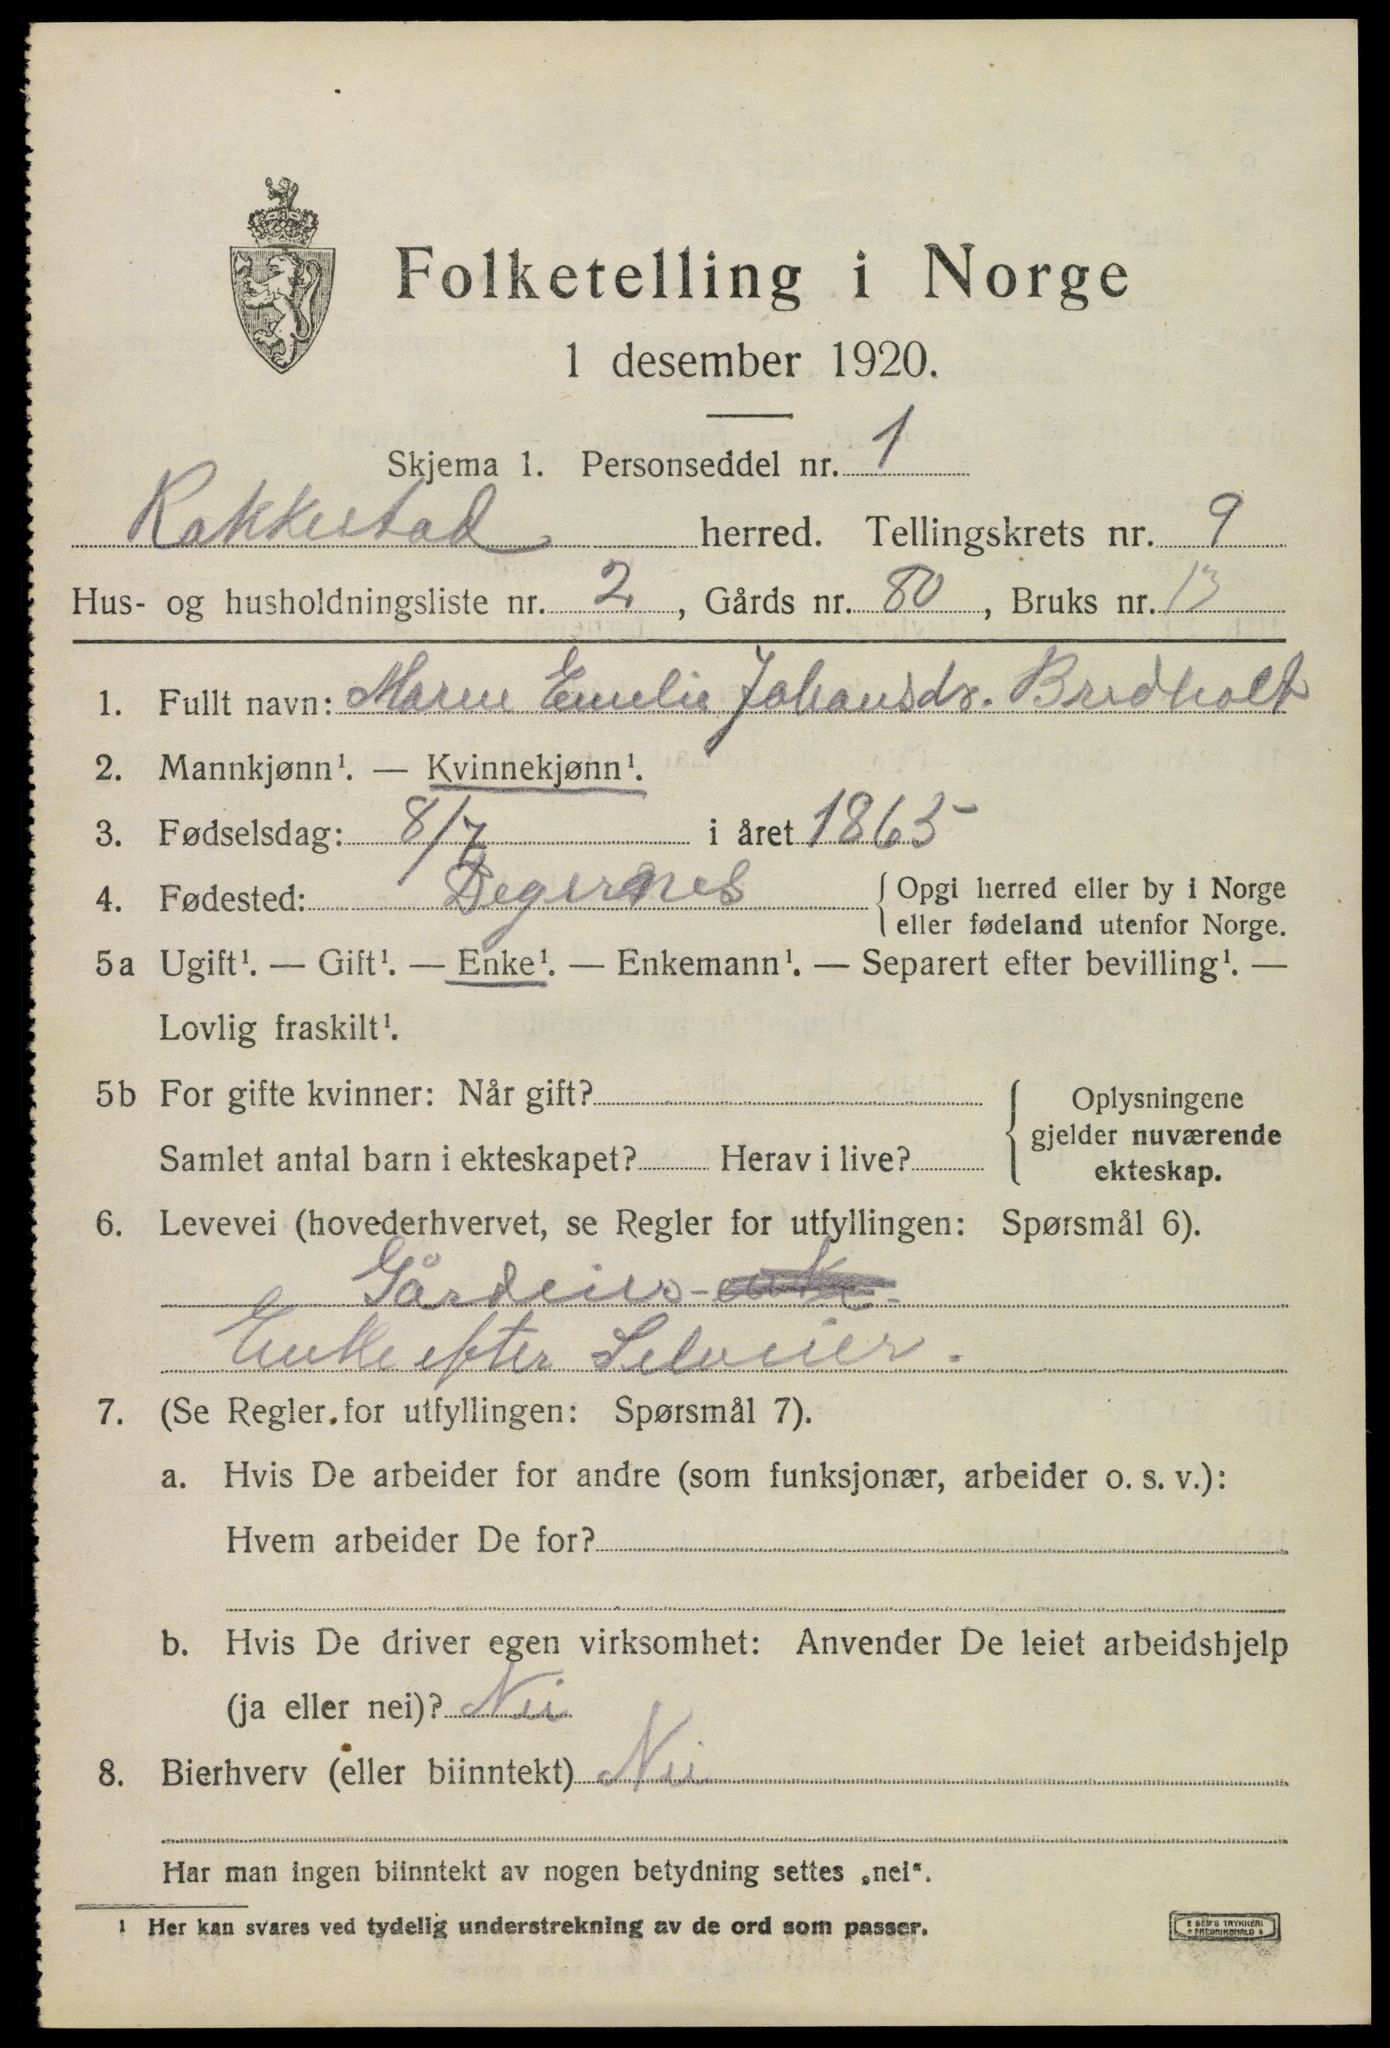 Folketelling i Norge
1 desember 1920.
Skjema 1. Personseddel nr. 1
Rakkestad herred. Tellingskrets nr. 9
Hus- og husholdningsliste nr. 2, Gårds nr. 80, Bruks nr. 13
1. Fullt navn: Maren Emelie Johansdr. Bredholt
2. Mannkjønn¹. — Kvinnekjønn¹.
3. Fødselsdag: 8/7 i året 1865
4. Fødested: Degernes { Opgi herred eller by i Norge
eller fødeland utenfor Norge.
5a Ugift¹. — Gift¹. — Enke¹. — Enkemann¹. — Separert efter bevilling¹. —
Lovlig fraskilt¹.
5b For gifte kvinner: Når gift?
Samlet antal barn i ekteskapet? Herav i live?
{ Oplysningene
gjelder nuværende
ekteskap.
6. Levevei (hovederhvervet, se Regler for utfyllingen: Spørsmål 6).
Gårdeier-enke.
Enke efter Selveier.
7. (Se Regler for utfyllingen: Spørsmål 7).
a. Hvis De arbeider for andre (som funksjonær, arbeider o. s. v.):
Hvem arbeider De for?
b. Hvis De driver egen virksomhet: Anvender De leiet arbeidshjelp
(ja eller nei)? Nei
8. Bierhverv (eller biinntekt) Nei
Har man ingen biinntekt av nogen betydning settes „nei“.
1 Her kan svares ved tydelig understrekning av de ord som passer.
E SEM'S TRYKKERI
FREDRIKSHALD